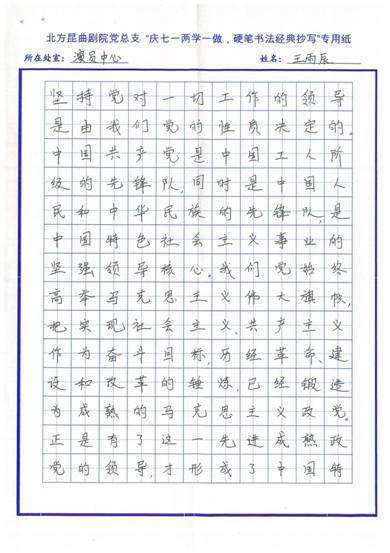 北方昆曲剧院党总支 "庆七一两学一做，硬笔书法经典抄写"专用纸
所在处室：演员中心 姓名：王雨辰
坚持党对一切工作的领导
是由我们党的性质决定的。
中国共产党是中国工人阶
级的先锋队，同时是中国人
民和中华民族的先锋队，是
中国特色社会主义事业的
坚强领导核心。我们党始终
高举马克思主义伟大旗帜，
把实现社会主义、共产主义
作为奋斗目标，历经革命、建
设和改革的锤炼，已经锻造
为成熟的马克思主义政党。
正是有了这一先进成熟政
党的领导，才形成了中国特